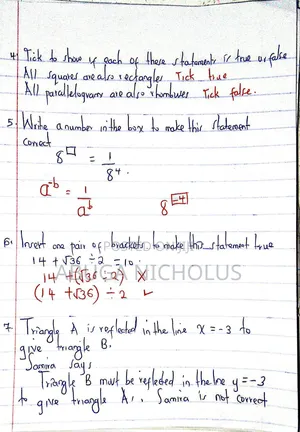 4. Tick to show if each of these statements is true or false
All squares are also rectangles Tick true
All parallelograms are also rhombuses Tick false.
5. Write a number in the box to make this statement
correct
8^□ = 1/8^4.
a^-b = 1/a^b
8^-4
6. Insert one pair of brackets to make this statement true
14 + √36 ÷ 2 = 10.
14 + (√36 ÷ 2) X
(14 + √36) ÷ 2 ✓
NICHOLUS
7. Triangle A is reflected in the line x = -3 to
give triangle B.
Samira says
Triangle B must be reflected in the line y = -3
to give triangle A. Samira is not correct